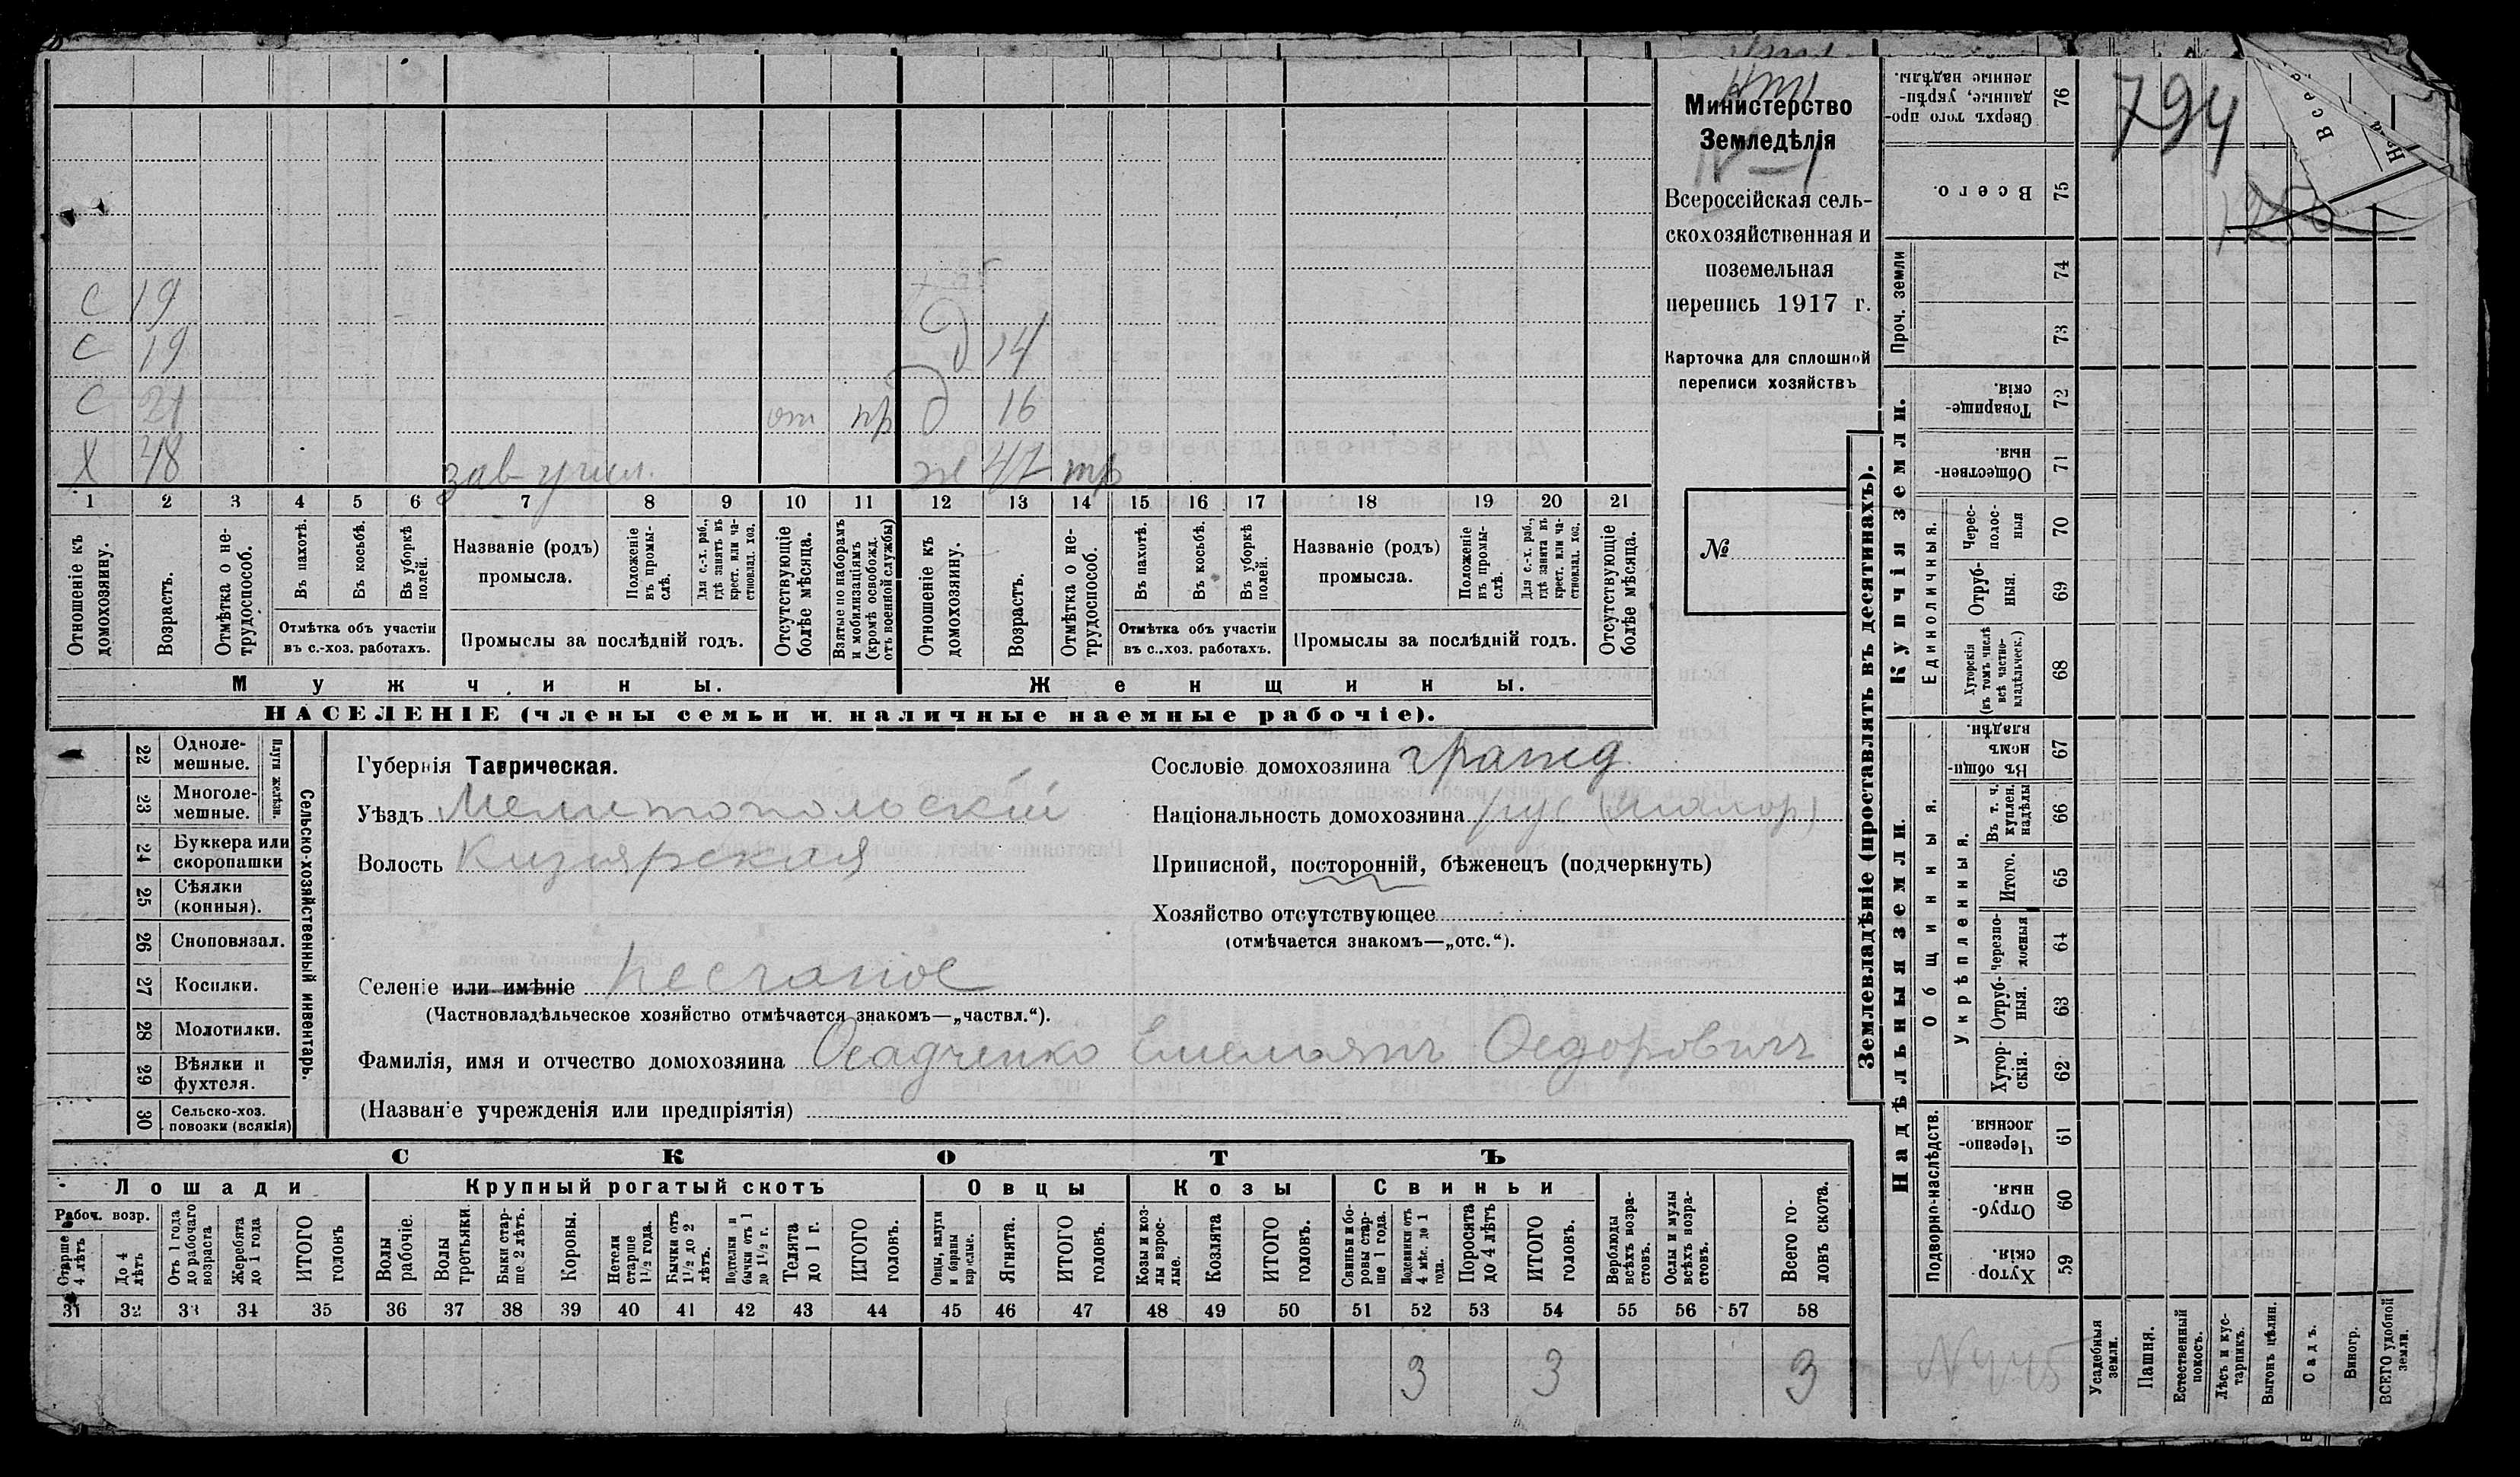 794
Министерство
Земледѣлія
Всероссійская сель-
скохозяйственная и
поземельная
перепись 1917 г.
Карточка для сплошной
переписи хозяйствъ
№
С 19
С 19 Д 14
С 21 от пр Д 16
Х 48 зав учил. ж 47 тр
1 2 3 4 5 6 7 8 9 10 11 12 13 14 15 16 17 18 19 20 21
Отношеніе къ домохозяину.
Возрастъ.
Отмѣтка о не-трудоспособ.
Въ пахотѣ.
Въ косьбѣ.
Въ уборкѣ полей.
Отмѣтка объ участіи
въ с.-хоз. работахъ.
Названіе (родъ)
промысла.
Положеніе въ промы-слѣ.
Для с.-х. раб., гдѣ занятъ въ крест. или ча-стновлад. хоз.
Промыслы за послѣдній годъ.
Отсутствующіе болѣе мѣсяца.
Взятые по наборамъ и мобилизаціямъ (кромѣ освобожд. отъ военной службы)
Отношеніе къ домохозяину.
Возрастъ.
Отмѣтка о не-трудоспособ.
Въ пахотѣ.
Въ косьбѣ.
Въ уборкѣ полей.
Отмѣтка объ участіи
въ с..хоз. работахъ.
Названіе (родъ)
промысла.
Положеніе въ промы-слѣ.
Для с.-х. раб., гдѣ занята въ крест. или ча-стновлад. хоз.
Промыслы за послѣдній годъ.
Отсутствующіе болѣе мѣсяца.
Мужчины. Женщины.
НАСЕЛЕНІЕ (члены семьи и наличные наемные рабочіе).
Сельско-хозяйственный инвентарь.
Плуги желѣзн.
22 Одноле-мешные.
23 Многоле-мешные.
24 Буккера или скоропашки
25 Сѣялки (конныя).
26 Сноповязал.
27 Косилки.
28 Молотилки.
29 Вѣялки и фухтеля.
30 Сельско-хоз. повозки (всякія)
Губернія Таврическая.
Уѣздъ Мелитопольскій
Волость Кизиярская
Селеніе или имѣніе Песчаное
(Частновладѣльческое хозяйство отмѣчается знакомъ—„частвл.“).
Фамилія, имя и отчество домохозяина Осадченко Емельянъ Федоровичъ
(Названіе учрежденія или предпріятія)
Сословіе домохозяина гражд
Національность домохозяина рус (малор)
Приписной, посторонній, бѣженецъ (подчеркнуть)
Хозяйство отсутствующее
(отмѣчается знакомъ—„отс.“).
СКОТЪ
Лошади Крупный рогатый скотъ Овцы Козы Свиньи
Рабоч. возр.
Старше 4 лѣтъ
До 4 лѣтъ
Отъ 1 года до рабочаго возраста
Жеребята до 1 года
ИТОГО головъ
Волы рабочіе.
Волы третьяки.
Быки стар-ше 2 лѣтъ.
Коровы.
Нетели старше 1½ года.
Бычки отъ 1½ до 2 лѣтъ.
Подтелки и бычки отъ 1 до 1½ г.
Телята до 1 г.
ИТОГО головъ.
Овцы, валухи и бараны взрослые.
Ягнята.
ИТОГО головъ.
Козы и коз-лы взрос-лые.
Козлята
ИТОГО головъ.
Свиньи и бо-ровы стар-ше 1 года.
Подсвинки отъ 4 мѣс. до 1 года.
Поросята до 4 лѣтъ
ИТОГО головъ.
Верблюды всѣхъ возра-стовъ.
Ослы и мулы всѣхъ возра-стовъ.
Всего го-ловъ скота.
31 32 33 34 35 36 37 38 39 40 41 42 43 44 45 46 47 48 49 50 51 52 53 54 55 56 57 58
3 3 3
Землевладѣніе (проставлять въ десятинахъ).
Купчія земли.
Проч. земли
Сверхъ того про-данные, укрѣп-ленные надѣлы. 76
Всего. 75
74
73
Товарище-скія. 72
Обществен-ныя. 71
Единоличныя.
Черес-полос-ныя 70
Отруб-ныя. 69
Хуторскія (въ томъ числѣ всѣ частно-владѣльческ.) 68
Надѣльныя земли.
Общинныя.
Въ общи-номъ владѣн. 67
Укрѣпленныя.
Въ т. ч. куплен. надѣлы 66
Итого. 65
Черезпо-лосныя 64
Отруб-ныя. 63
Хутор-скія. 62
Подворно-наслѣдств.
Черезпо-лосныя 61
Отруб-ныя. 60
Хутор-скія. 59
Усадебныя земли.
Пашня.
Естественный покосъ.
Лѣсъ и кус-тарникъ.
Выгонъ цѣлин.
Садъ.
Виногр.
ВСЕГО удобной земли.